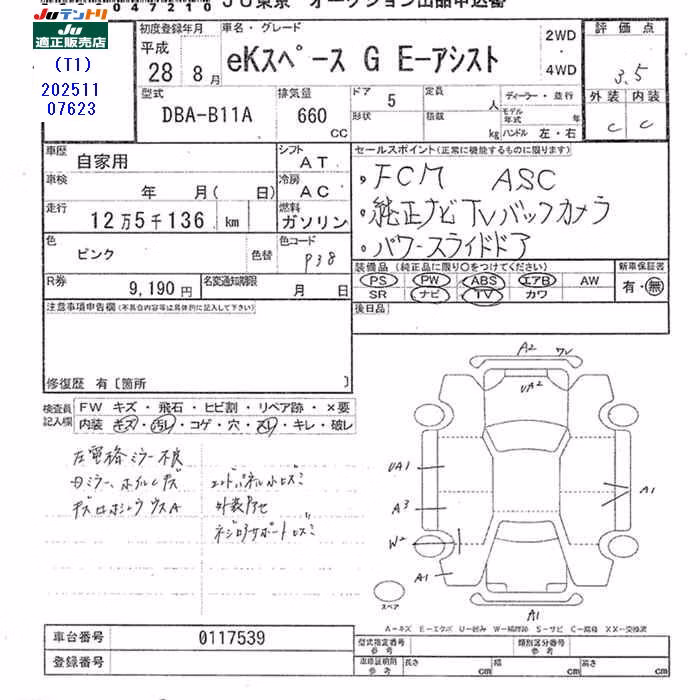 047210 JU東京 オークション出品申込書
JUテントリ
Ju
適正販売店
(T1)
202511
07623
初度登録年月 車名・グレード 2WD ・ 4WD 評価点
平成 28 8月 eKスペース G E-アシスト 3.5
型式 排気量 ドア 5 定員 人 ディーラー・並行 外装 内装
DBA-B11A 660 CC 形状 積載 kg モデル年式 年 ハンドル 左・右 C C
車歴 自家用 シフト AT セールスポイント(正常に機能するものに限ります)
車検 年 月( 日) 冷房 AC ・FCM ASC
走行 12万5千136 km 燃料 ガソリン ・純正ナビTVバックカメラ
色 ピンク 色替 色コード P38 ・パワースライドドア
R券 9,190円 名変通知期限 月 日
装備品 (純正品に限り○をつけてください) 新車保証書
PS PW ABS エアB AW 有・無
SR ナビ TV カワ
注意事項申告欄(不具合内容等は具体的に記入して下さい) 後日品
修復歴 有〔箇所 〕
検査員記入欄 FW キズ・飛石・ヒビ割・リペア跡・×要
内装 キズ・汚レ・コゲ・穴・スレ・キレ・破レ
左電格ミラー不良
外装
A2 ワレ
UA2
UA1
A3
W2
A1
A1
A1
スペア
A-キズ E-エクボ U-凹み W-補修跡 S-サビ C-腐蝕 XX-交換済
車台番号 0117539 型式指定番号 参考 類別区分番号 参考
登録番号 車庫証明用 参考 長さ cm 幅 cm 高さ cm